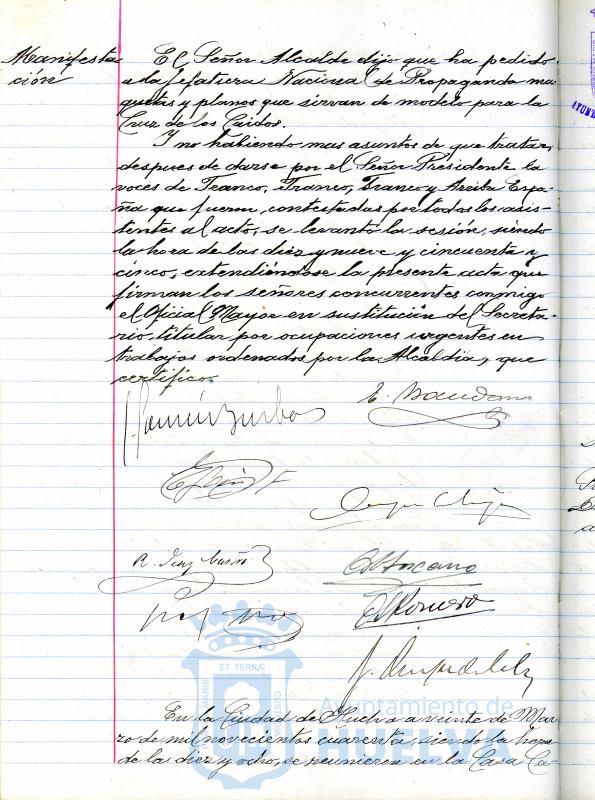 Manifesta
ción
El Señor Alcalde dijo que ha pedido
a la Jefatura Nacional de Propaganda ma-
quetas y planos que sirvan de modelo para la
Cruz de los Caidos.
Y no habiendo mas asuntos de que tratar,
despues de darse por el Señor Presidente la
voces de Franco, Franco, Franco y Arriba Espa-
ña que fueron, contestadas por todos los asis-
tentes al acto, se levantó la sesión, siendo
la hora de las diez y nueve y cincuenta y
cinco, extendiéndose la presente acta que
firman los señores concurrentes conmigo
el Oficial Mayor en sustitución del Secreta-
rio, titular por ocupaciones urgentes en
trabajos ordenados por la Alcaldia, que
certifico.
E.
R. Diaz
Romero
ET TERRÆ
Ayuntamiento de
HUELVA
En la Ciudad de Huelva a veinte de Mar-
zo de mil novecientos cuarenta, siendo la hora
de las diez y ocho, se reunieron en la Casa Ca-